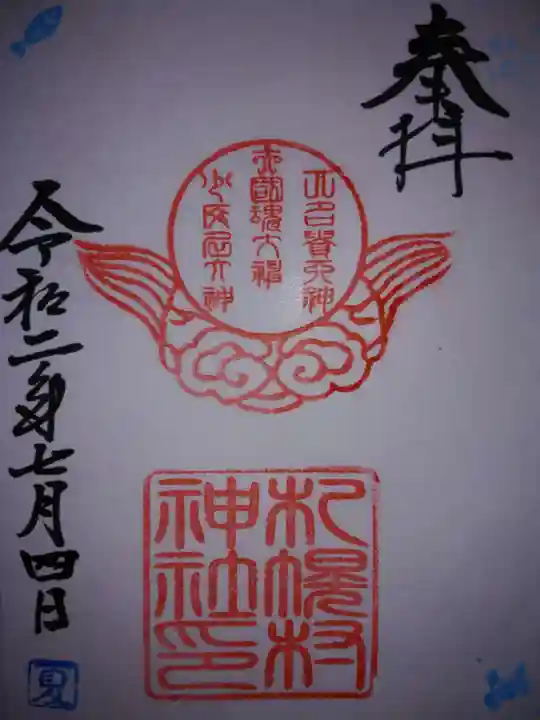 奉拝
大名貴大神
大國魂大神
少彦名大神
札幌村
神社印
令和二年七月四日
夏